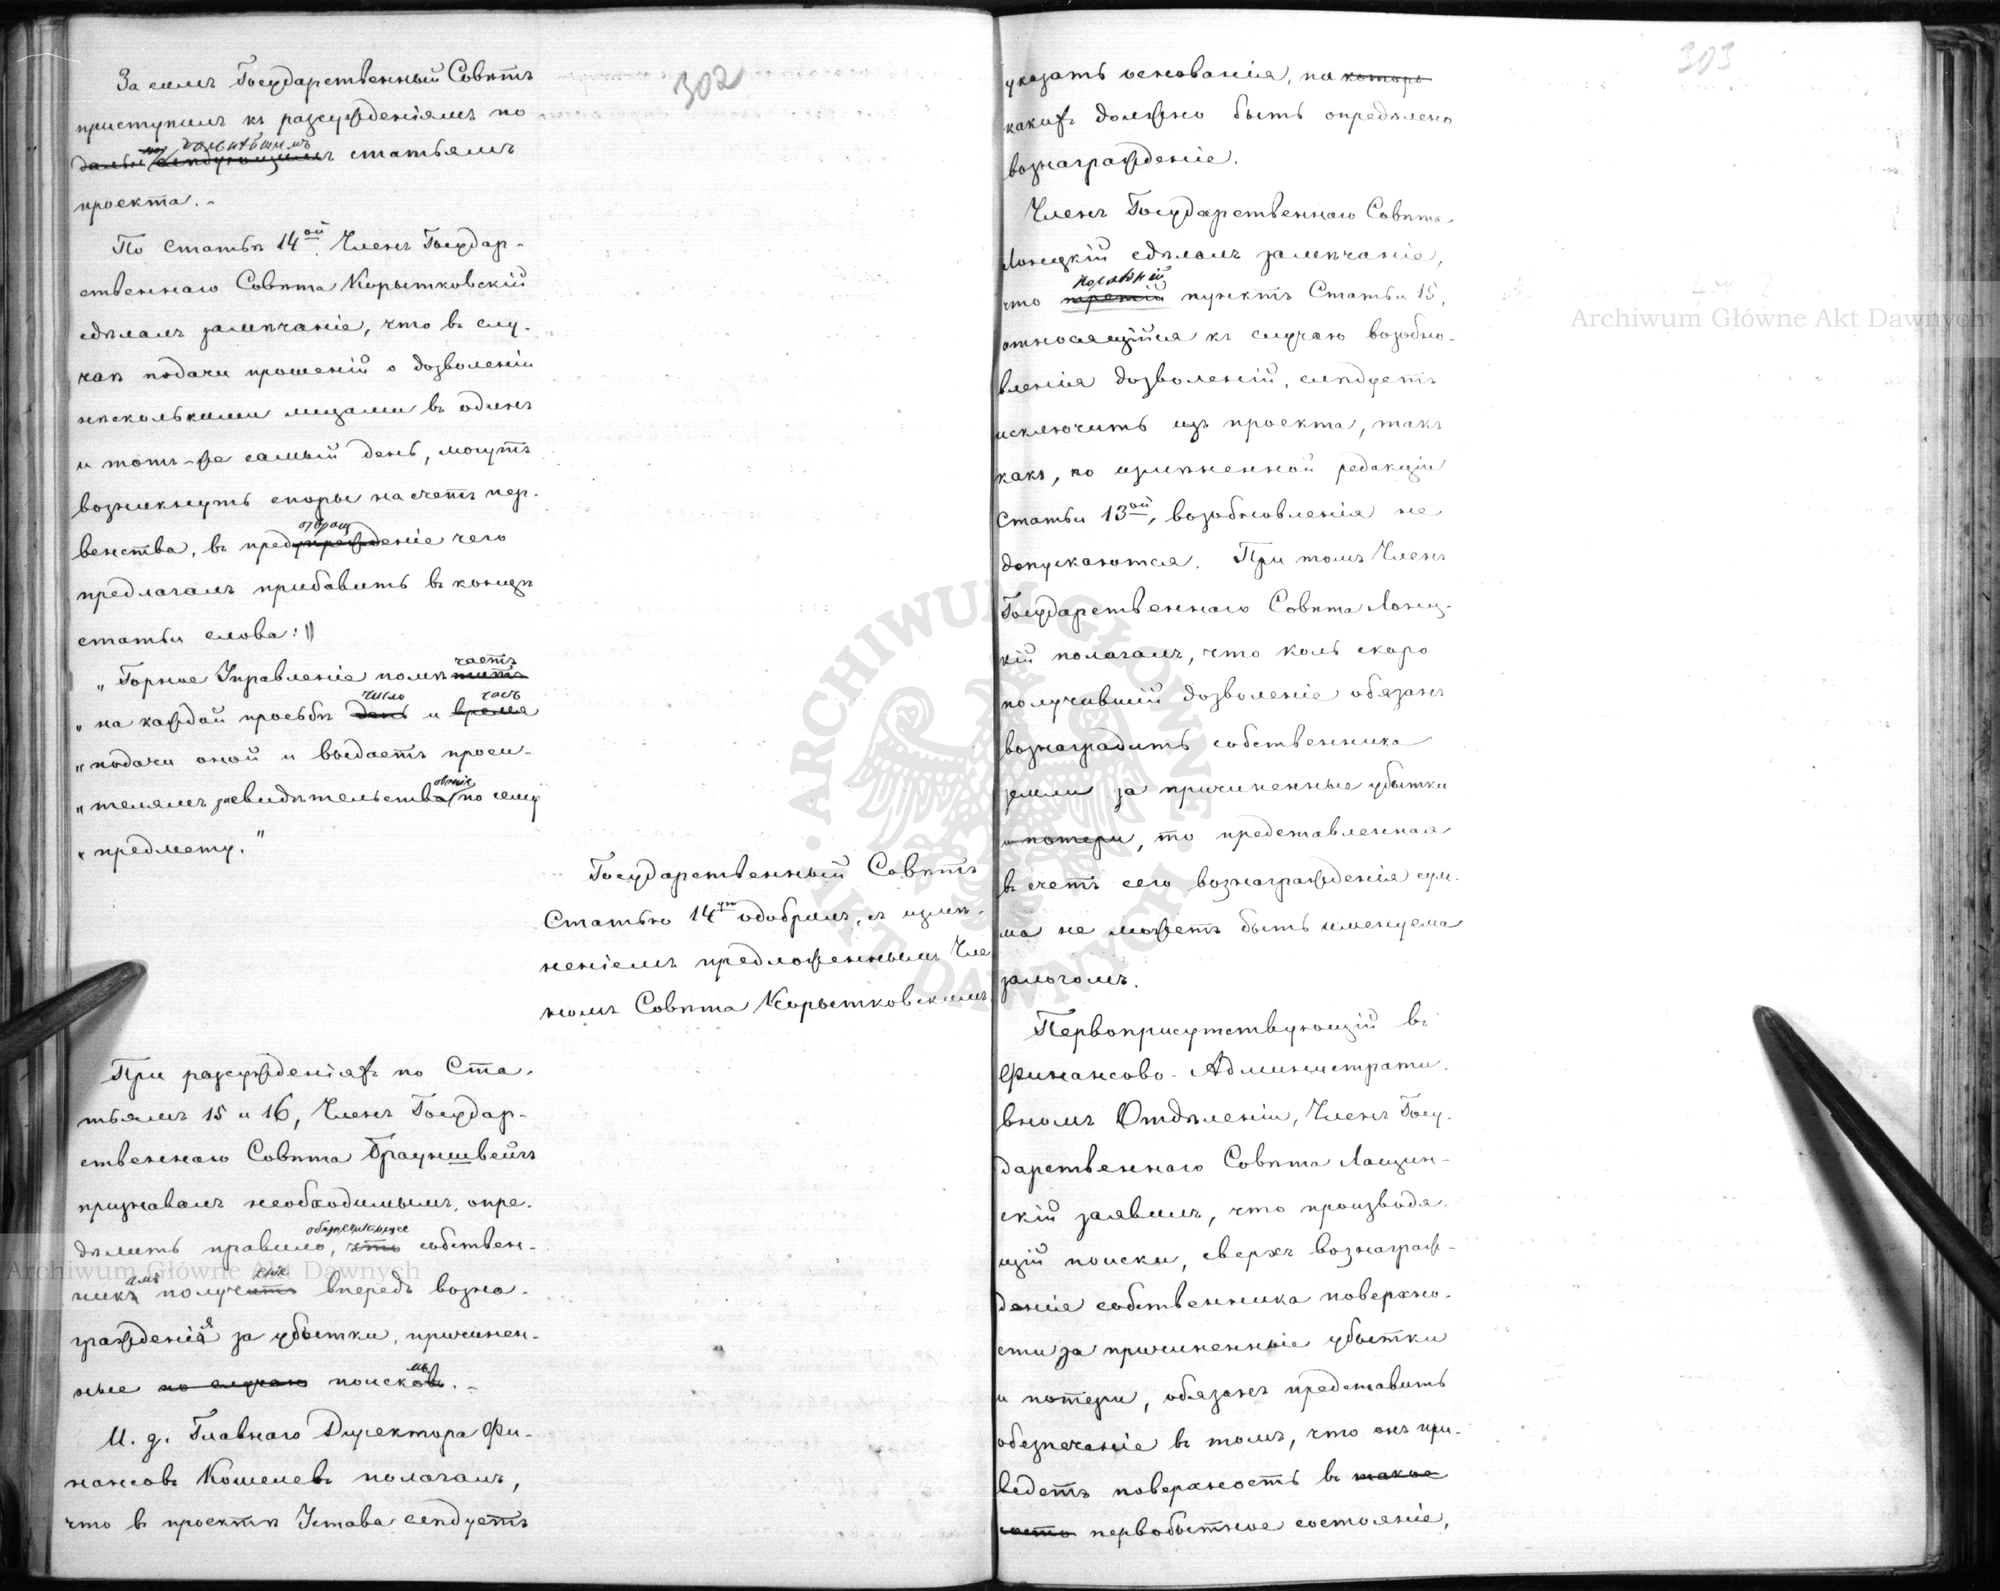 302
За симъ Государственный Совѣтъ
приступилъ къ разсужденіямъ по
статьямъ
проекта. -
По Статьѣ 14ой Членъ Государ-
ственнаго Совѣта Корытковскій
сдѣлалъ замѣчаніе, что въ слу-
чаѣ подачи прошеній о дозволеніи
нѣсколькими лицами въ одинъ
и тотъ-же самый день, могутъ
возникнуть споры на счетъ пер-
венства, въ предотвращеніе чего
предлагалъ прибавить въ концѣ
статьи слова:
„Горное Управленіе помѣчаетъ
„на каждой просьбѣ число и часъ
„подачи оной и выдаетъ проси-
„телямъ засвидѣтельствованіе по сему
„предмету."
Государственный Совѣтъ
Статью 14ую одобрилъ, съ измѣ-
неніемъ предложеннымъ Чле-
номъ Совѣта Корытковскимъ.
При разсужденіяхъ по Ста-
тьямъ 15 и 16, Членъ Государ-
ственнаго Совѣта Брауншвейгъ
признавалъ необходимымъ, опре-
дѣлить правило, обезпечивающее собствен-
никамъ полученіе впередъ возна-
гражденія за убытки, причинен-
ные поисками. -
И. д. Главнаго Директора Фи-
нансовъ Кошелевъ полагалъ,
что въ проектѣ Устава слѣдуетъ
303
указать основанія, на которы
какихъ должно быть опредѣлено
вознагражденіе.
Членъ Государственнаго Совѣта
Лонцкій сдѣлалъ замѣчаніе,
что послѣдній пунктъ Статьи 15,
относящійся къ случаю возобно-
вленія дозволеній, слѣдуетъ
исключить изъ проекта, такъ
какъ, по измѣненной редакціи
Статьи 13ой, возобновленія не
допускаются. При томъ Членъ
Государственнаго Совѣта Лонц-
кій полагалъ, что коль скоро
получившій дозволеніе обязанъ
вознаградить собственника
земли за причиненные убытки
и потери, то представленная
въ счетъ сего вознагражденія сум-
ма не можетъ быть именуема
залогомъ.
Первоприсутствующій въ
Финансово-Административ-
вномъ Отдѣленіи, Членъ Госу-
дарственнаго Совѣта Лащин-
скій заявилъ, что производя-
щій поиски, сверхъ вознаграж-
деніе собственника поверхно-
сти за причиненные убытки
и потери, обязанъ представить
обезпеченіе въ томъ, что онъ при-
ведетъ поверхность въ такое
первобытное состояніе,
Archiwum Główne Akt Dawnych
Archiwum Główne Akt Dawnych
ARCHIWUM GŁÓWNE AKT DAWNYCH